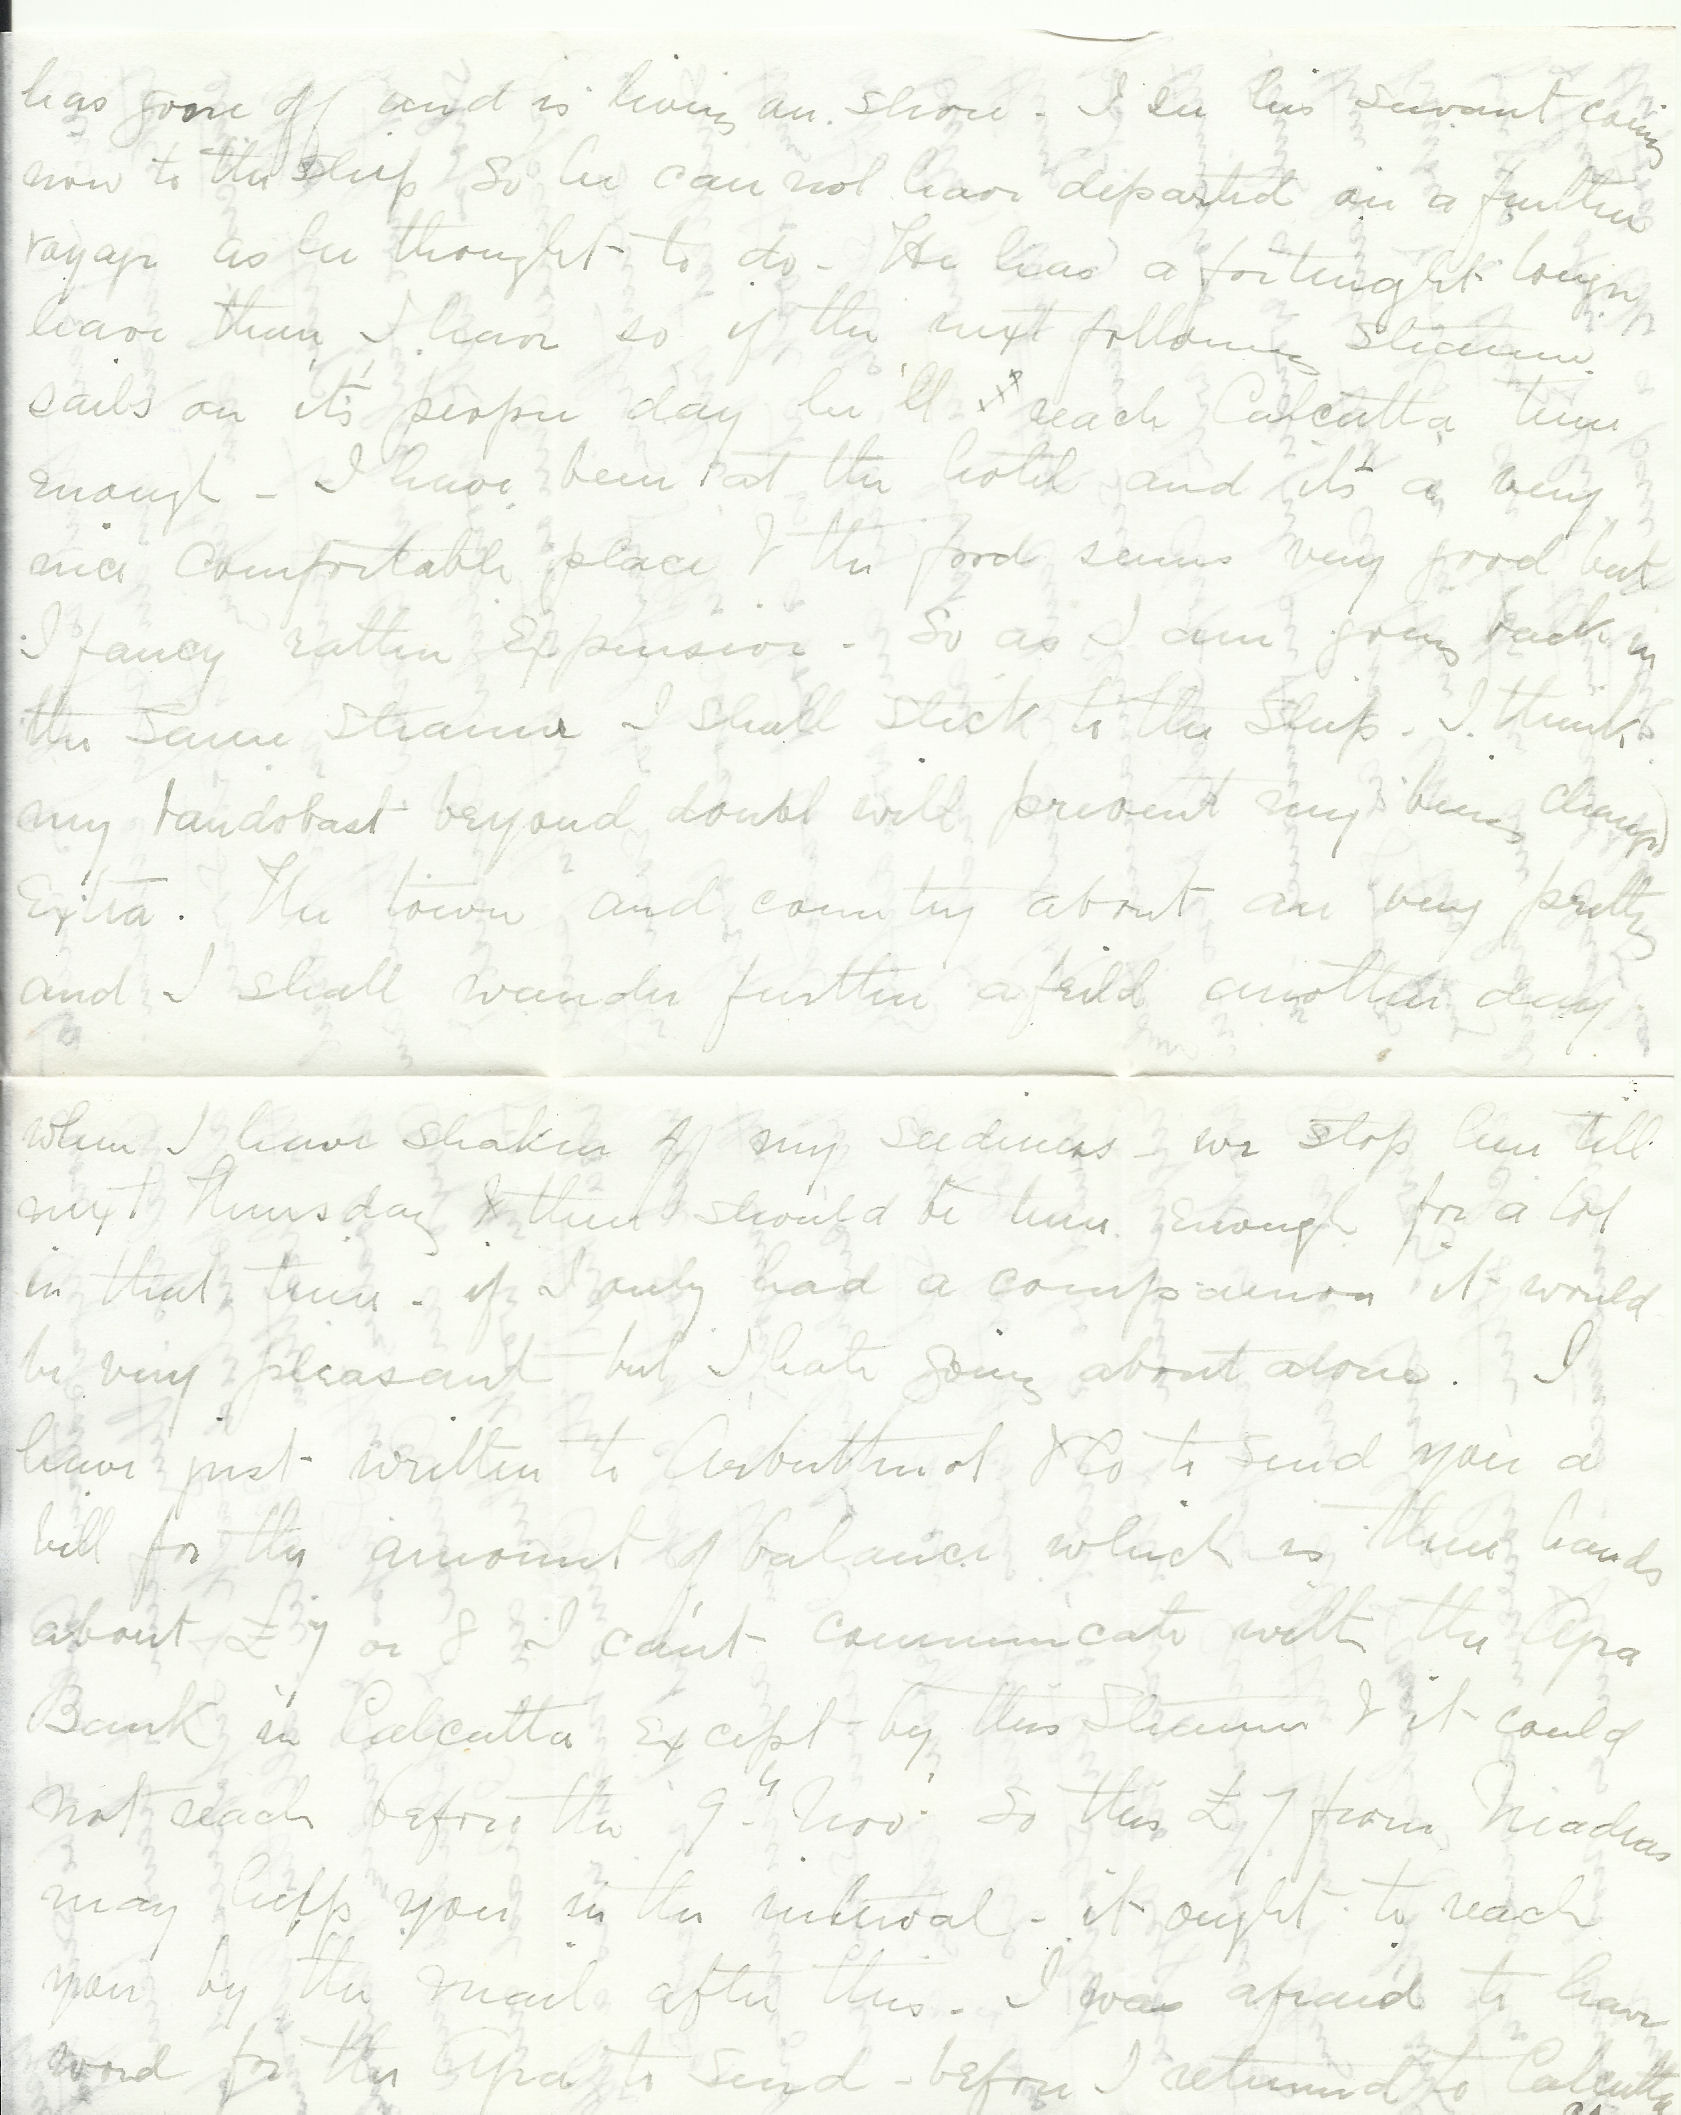 has gone off and is living on shore - I see his servant coming
now to the ship so he can not have departed on a further
voyage as he thought to do - He has a fortnight longer
leave than I have so if the next following steamer
sails on it's proper day he'll reach Calcutta time
enough - I have been at the hotel and it's a very
nice comfortable place & the food seems very good but
I fancy rather expensive - So as I am going back in
the same steamer I shall stick to the ship. I think
my bandobast beyond doubt will prevent my being charged
Extra. The town and country about are very pretty
and I shall wander further afeild another day
when I have shaken off my seediness - we stop here till
next Thursday & there should be time enough for a lot
in that time - if I only had a companion it would
be very pleasant but I hate going about alone. I
have just written to Arbuthnot & Co to send you a
bill for the amount of balance which is their hands
about £7 or 8 I can't communicate with the Agra
Bank in Calcutta Except by this steamer & it could
not reach before the 9th Nov. So this £7 from Madras
may help you in the interval - it ought to reach
you by the mail after this - I was afraid to leave
word for the Agra to send - before I returned to Calcutta